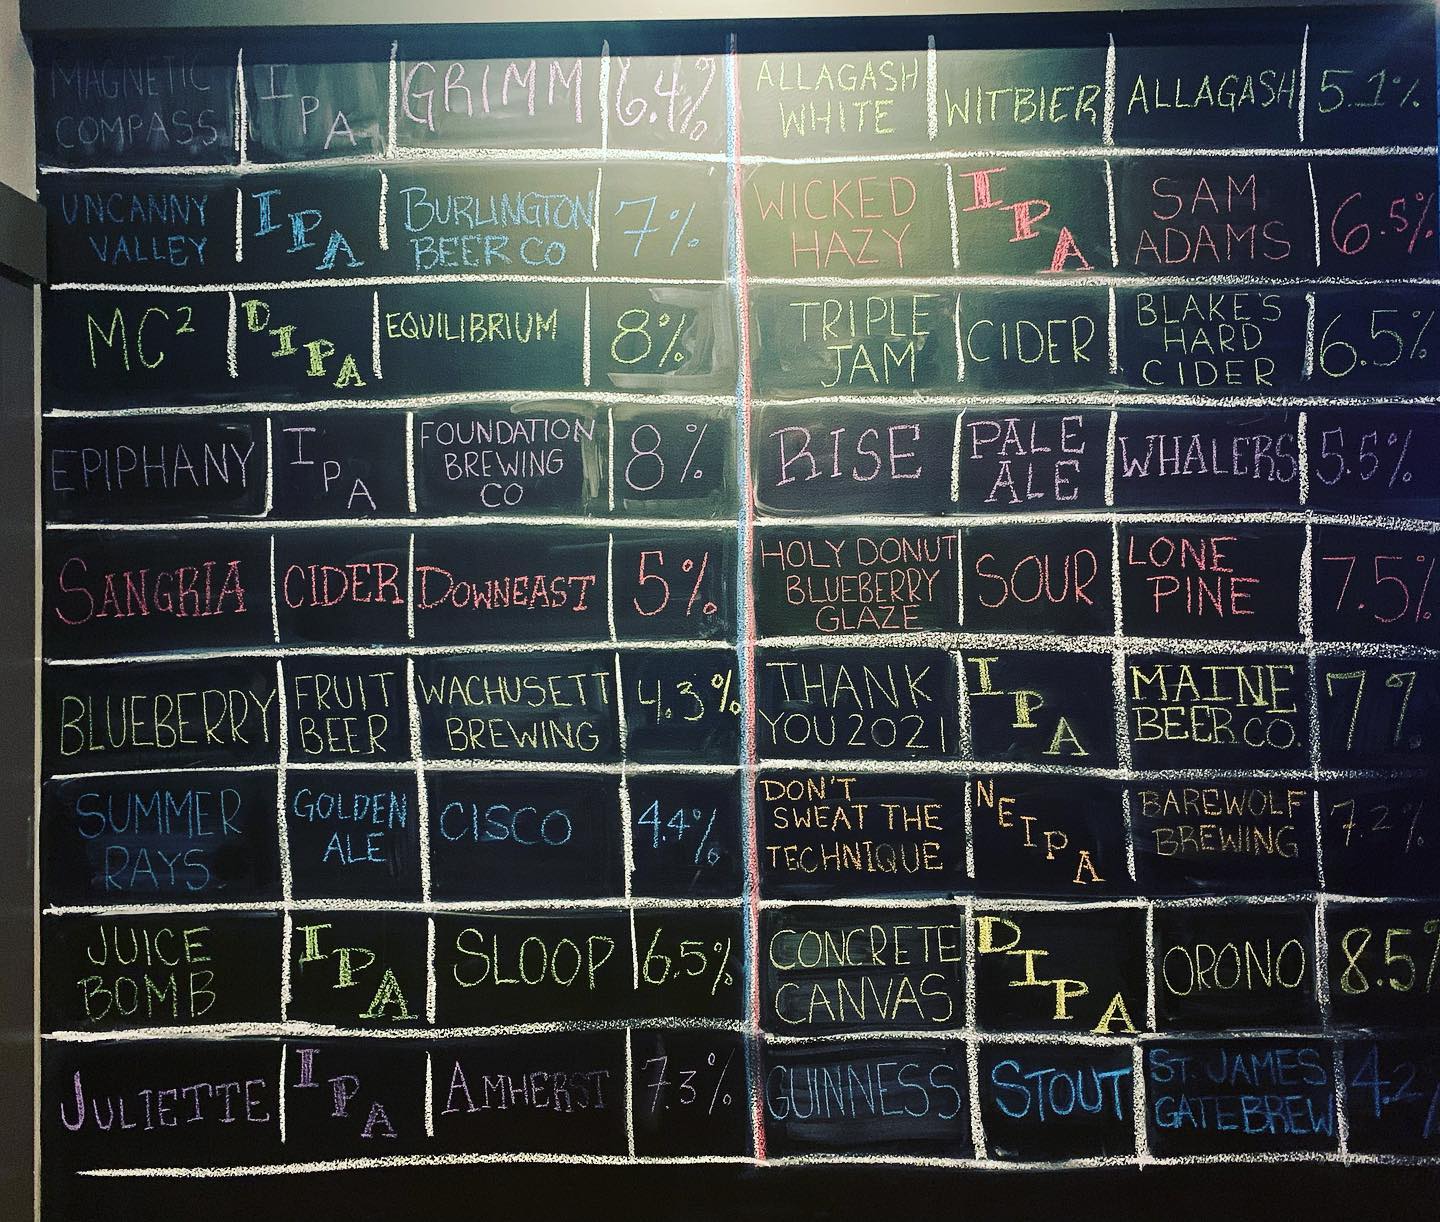 MAGNETIC COMPASS IPA GRIMM 6.4%
UNCANNY VALLEY IPA BURLINGTON BEER CO 7%
MC² DIPA EQUILIBRIUM 8%
EPIPHANY IPA FOUNDATION BREWING CO 8%
SANGRIA CIDER DOWNEAST 5%
BLUEBERRY FRUIT BEER WACHUSETT BREWING 4.3%
SUMMER RAYS GOLDEN ALE CISCO 4.4%
JUICE BOMB IPA SLOOP 6.5%
JULIETTE IPA AMHERST 7.3%
ALLAGASH WHITE WITBIER ALLAGASH 5.1%
WICKED HAZY IPA SAM ADAMS 6.5%
TRIPLE JAM CIDER BLAKE'S HARD CIDER 6.5%
RISE PALE ALE WHALERS 5.5%
HOLY DONUT BLUEBERRY GLAZE SOUR LONE PINE 7.5%
THANK YOU 2021 IPA MAINE BEER CO. 7%
DON'T SWEAT THE TECHNIQUE NEIPA BAREWOLF BREWING 7.2%
CONCRETE CANVAS DIPA ORONO 8.5%
GUINNESS STOUT ST. JAMES GATE BREW 4.2%